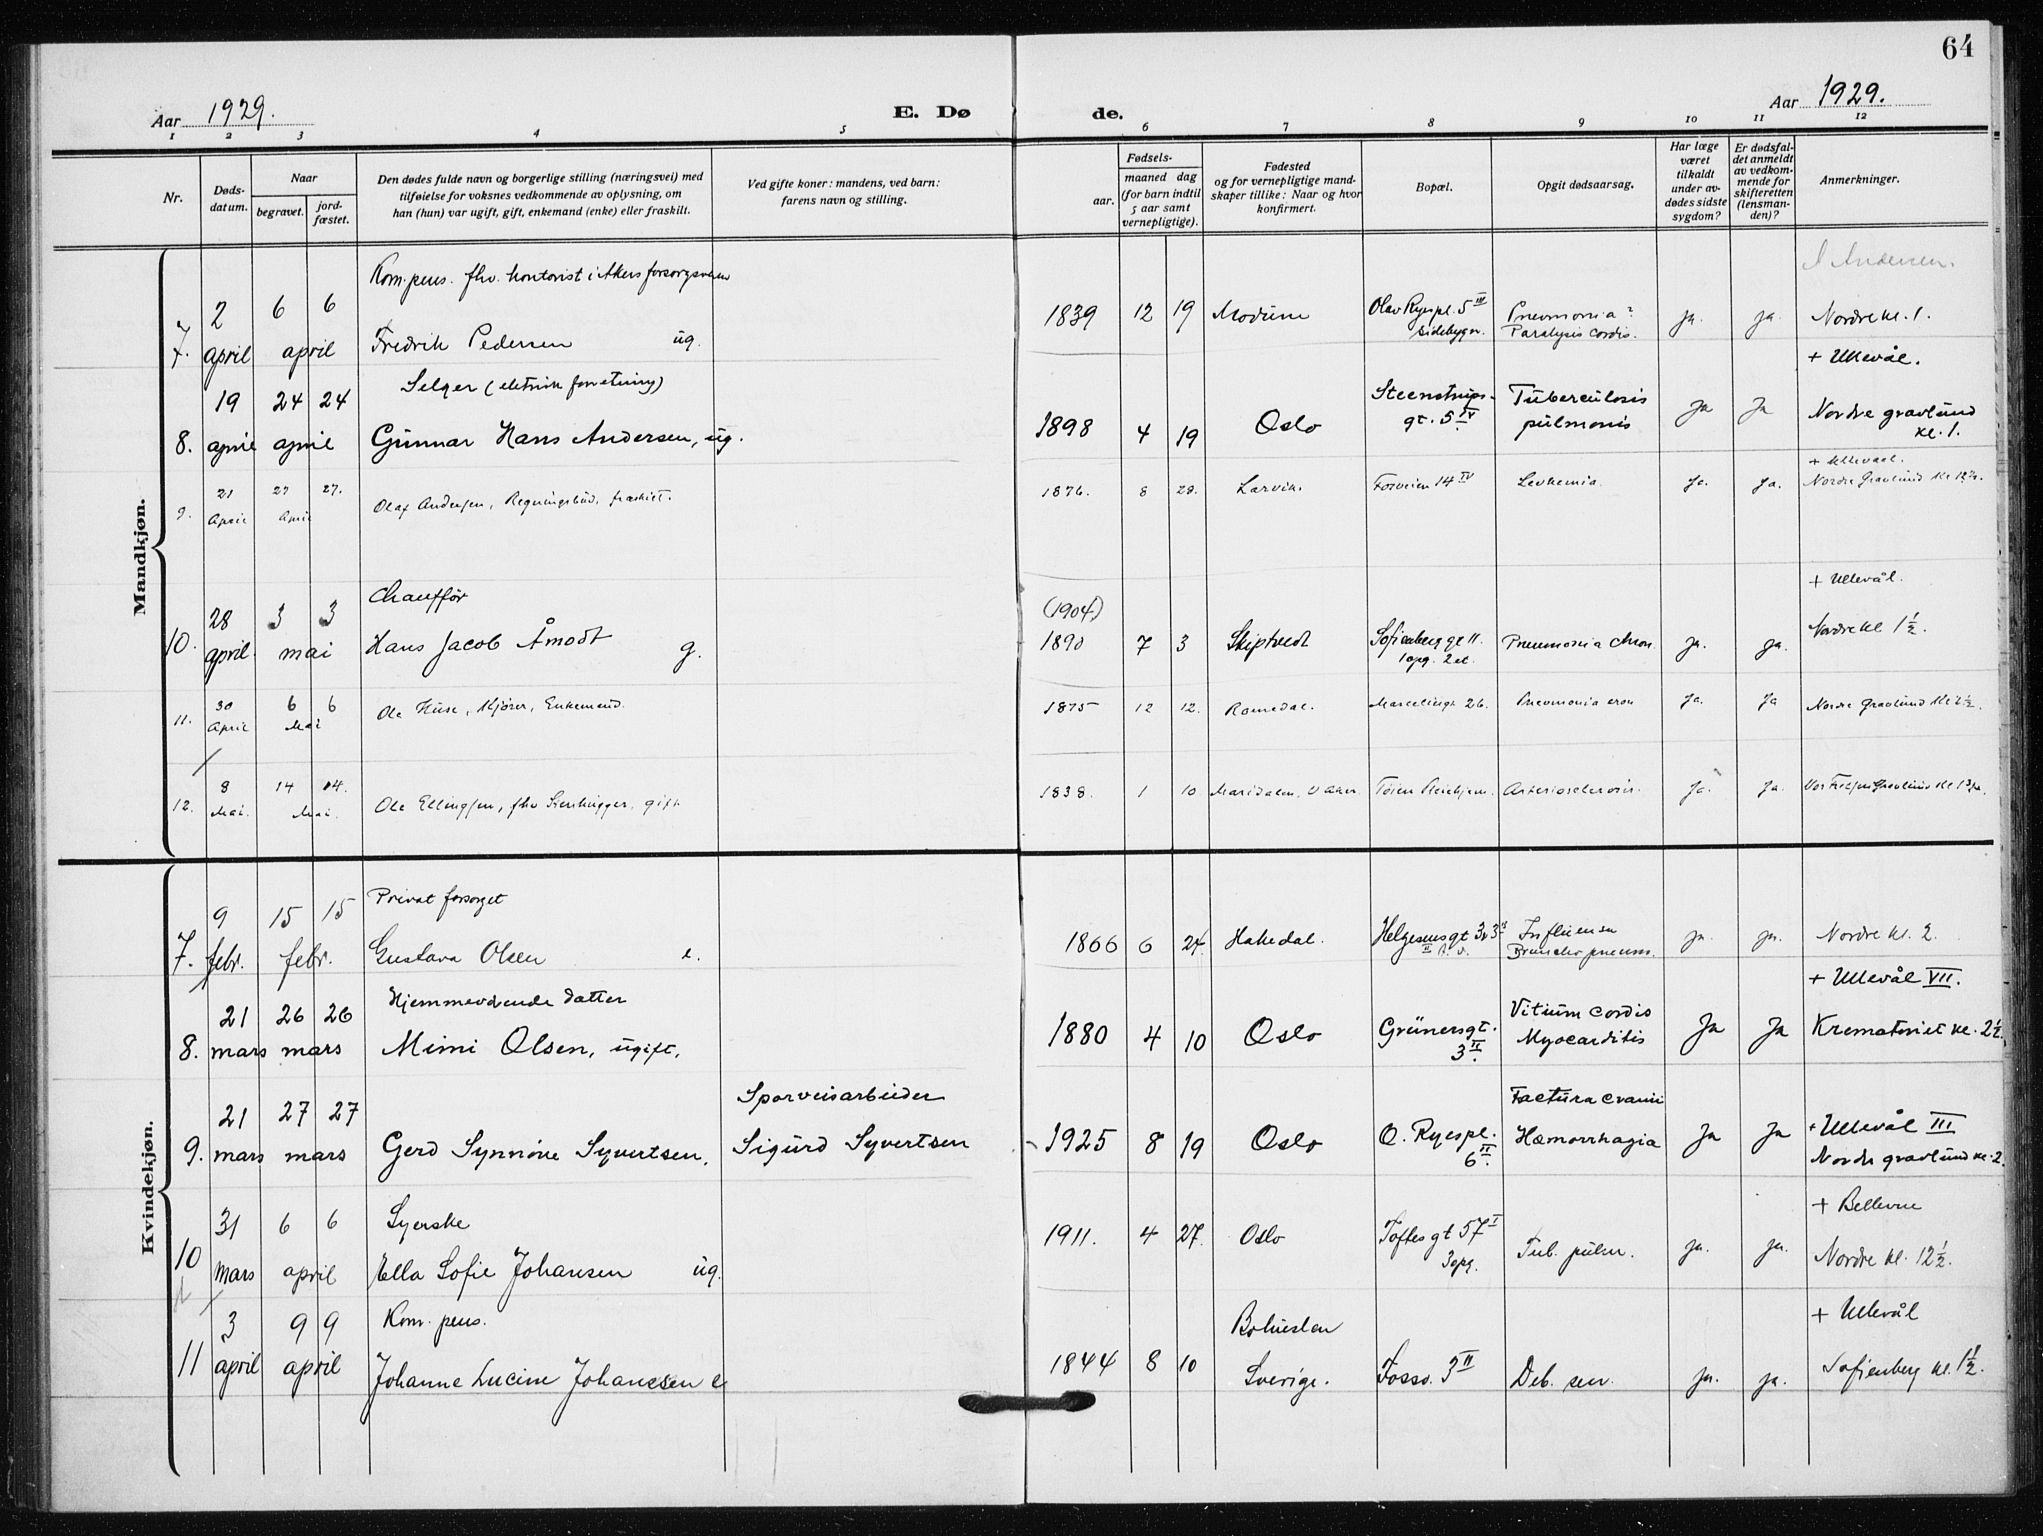 64
Aar 1929.
E. Døde.
Aar 1929.
1 2 3 4 5 6 7 8 9 10 11 12
Nr.
Døds-datum.
Naar
begravet.
jord-fæstet.
Den dødes fulde navn og borgerlige stilling (næringsvei) med
tilføielse for voksnes vedkommende av oplysning, om
han (hun) var ugift, gift, enkemand (enke) eller fraskilt.
Ved gifte koner: mandens, ved barn:
farens navn og stilling.
Fødsels-
aar.
maaned dag
(for barn indtil
5 aar samt
vernepligtige).
Fødested
og for vernepligtige mand-
skaper tillike: Naar og hvor
konfirmert.
Bopæl.
Opgit dødsaarsag.
Har læge
været
tilkaldt
under av-
dødes sidste
sygdom?
Er dødsfal-
det anmeldt
av vedkom-
mende for
skifteretten
(lensman-
den)?
Anmerkninger.
Mandkjøn.
Kom. pens. fhv. kontorist i Akers forsorgsvesen
Andersen.
7. 2 april 6 6 april Fredrik Pedersen ug. 1839 12 19 Modum Olav Ryespl. 5 III sidebygn. Pneumonia? Paralysis cordis. ja. ja. Nordre kl. 1.
Selger (eletrisk forretning) + Ullevål.
8. 19 april 24 24 april Gunnar Hans Andersen, ug. 1898 4 19 Oslo Steenstrups-gt. 5 IV Tuberculosis pulmonis Ja Ja Nordre gravlund kl. 1.
+ Ullevaal.
9. 21 April 27 27. April Olaf Andersen, Regningsbud, fraskilt. 1876. 8 28. Larvik. Fosveien 14 IV Levkemia. Ja. Ja. Nordre Gravlund
Chauffør (1904) + Ullevål.
10. 28 april. 3 3 mai Hans Jacob Åmodt g. 1890 7 3 Skiptvedt Sofienberg gt 11. 1 opg. 2 et. Pneumonia chron. ja. ja. Nordre kl 1 1/2.
11. 30 April 6 6 Mai Ole Huse, Kjører, Enkemand. 1875 12 12. Romedal. Marselisgt 26. Pneumonia cron Ja. Ja Nordre Gravlund
12. 8 Mai. 14 14. Mai. Ole Ellingsen, fhv Stenhugger, gift 1838. 1 10 Maridalen, V Aker. Tøien Pleiehjem. Arteriosclerosis. Ja. Ja. Vor Frelsers Gravlund
Kvindekjøn.
Privat forsorget
7. 9 febr. 15 15 febr. Gustava Olsen e. 1866 6 24. Hakedal. Helgesens gt Influensa Broncho pneum. ja. ja. Nordre kl. 2.
Hjemmeværende datter + Ullevål VII.
8. 21 mars 26 26 mars Mimi Olsen, ugift. 1880 4 10 Oslo Grünersgt. 3 II. Vitium cordis Myocarditis Ja Ja Krematoriet kl. 2 1/2.
Sporveisarbeider
9. 21 mars 27 27 mars Gerd Synnöve Syvertsen. Sigurd Syvertsen 1925 8 19 Oslo O. Ryespl. 6 II. Factura cranii Hæmorrhagia Ja Ja + Ullevål III Nordre gravlund kl. 2.
Syerske + Bellevue
10 31 mars 6 6 april Ella Sofie Johansen ug. 1911. 4 27. Oslo Toftes gt 57 I 3 opg. Tub. pulm. ja. ja. Nordre kl. 12 1/2.
Kom. pens. + Ullevål
11 3 april 9 9 april Johanne Lucine Johanesen e 1844 8 10 Bohuslen Sverige. Fossv. 3 II Deb. sen. ja. ja. Sofienberg kl. 1 1/2.